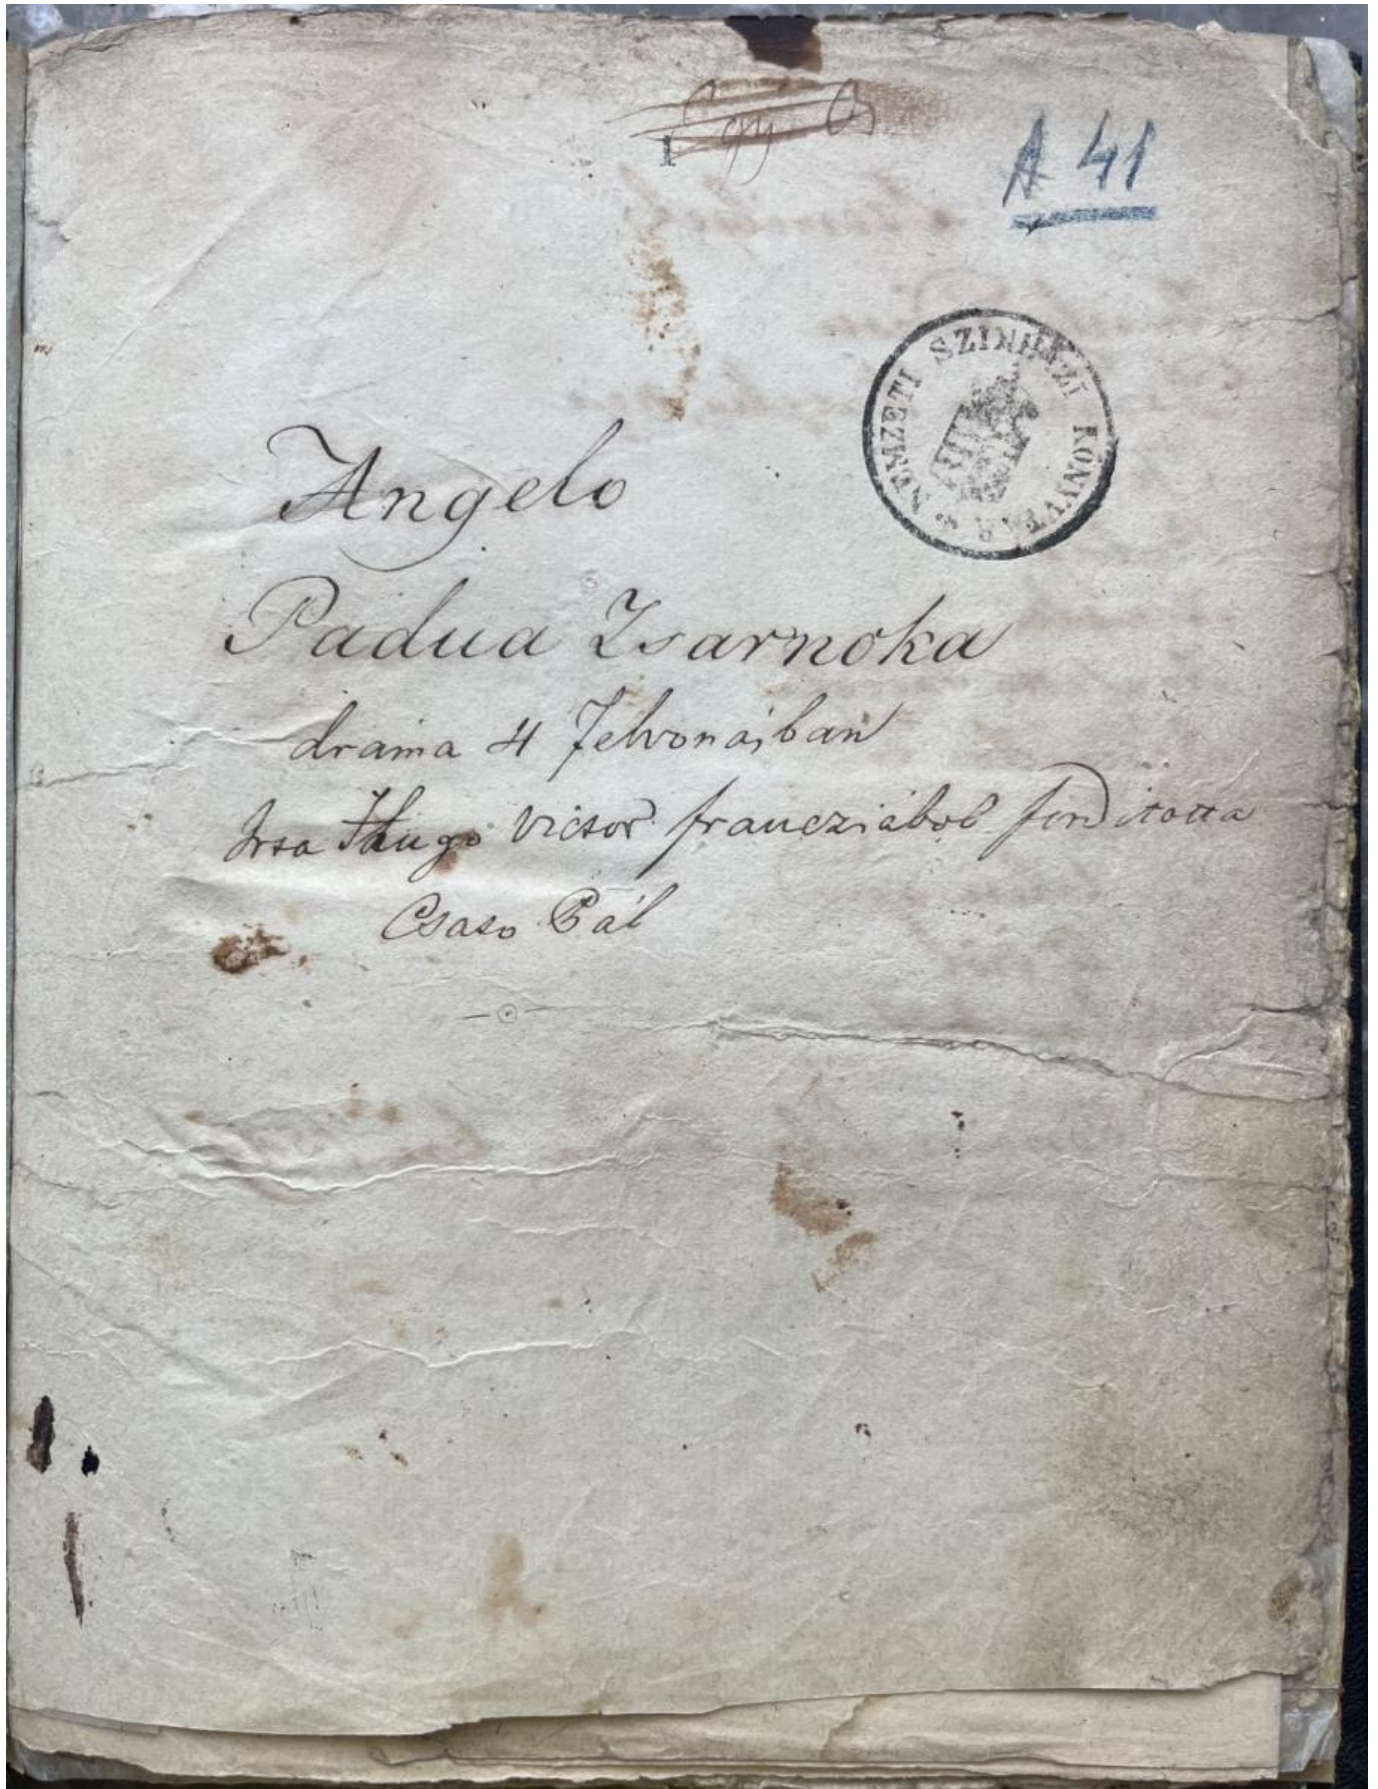 A 41
NEMZETI SZINHÁZI KÖNYVTÁR
Angelo
Padua Zsarnoka
dráma 4 Felvonásban
Irta Hugo Victor francziábol forditotta
Csató Pál